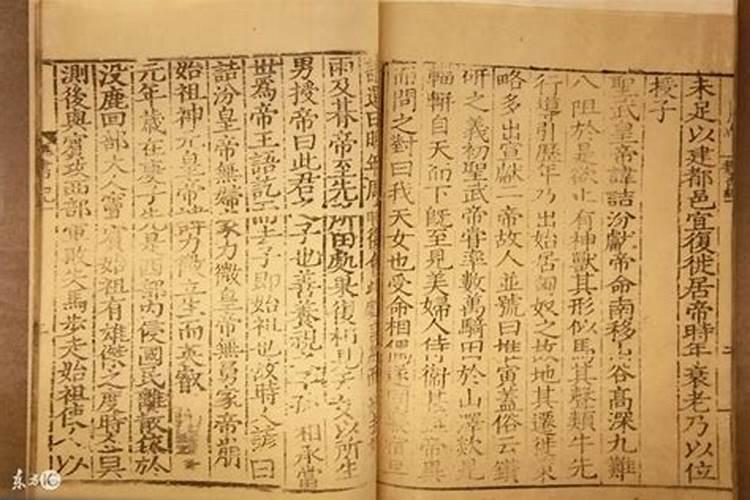 未足以建都邑宜復徙居帝時年衰老乃以位
授子
聖武皇帝諱詰汾獻帝命南移山谷高深九難
八阻於是欲止有神獸其形似馬其聲類牛先
行導引歷年乃出始居匈奴之故地其遷徙策
略多出宣獻二帝故人並號曰推寅蓋俗云鑽
研之義初聖武帝嘗率數萬騎田於山澤欻見
輜軿自天而下既至見美婦人侍衞甚盛帝異
而問之對曰我天女也受命相偶遂同
請還曰明年周時復
雨及朞帝至先所田處果復相見天女以所生
男授帝曰此君之子也善養視之子孫相承當
世為帝王語訖而去子即始祖也故時人諺曰
詰汾皇帝無婦家力微皇帝無舅家帝崩
始祖神元皇帝諱力微立生而英叡
元年歲在庚子先是西部內侵國民離散依於
没鹿回部大人竇賓始祖有雄傑之度時人莫
測後與賓攻西部軍敗失馬步走始祖使人以
东方IC